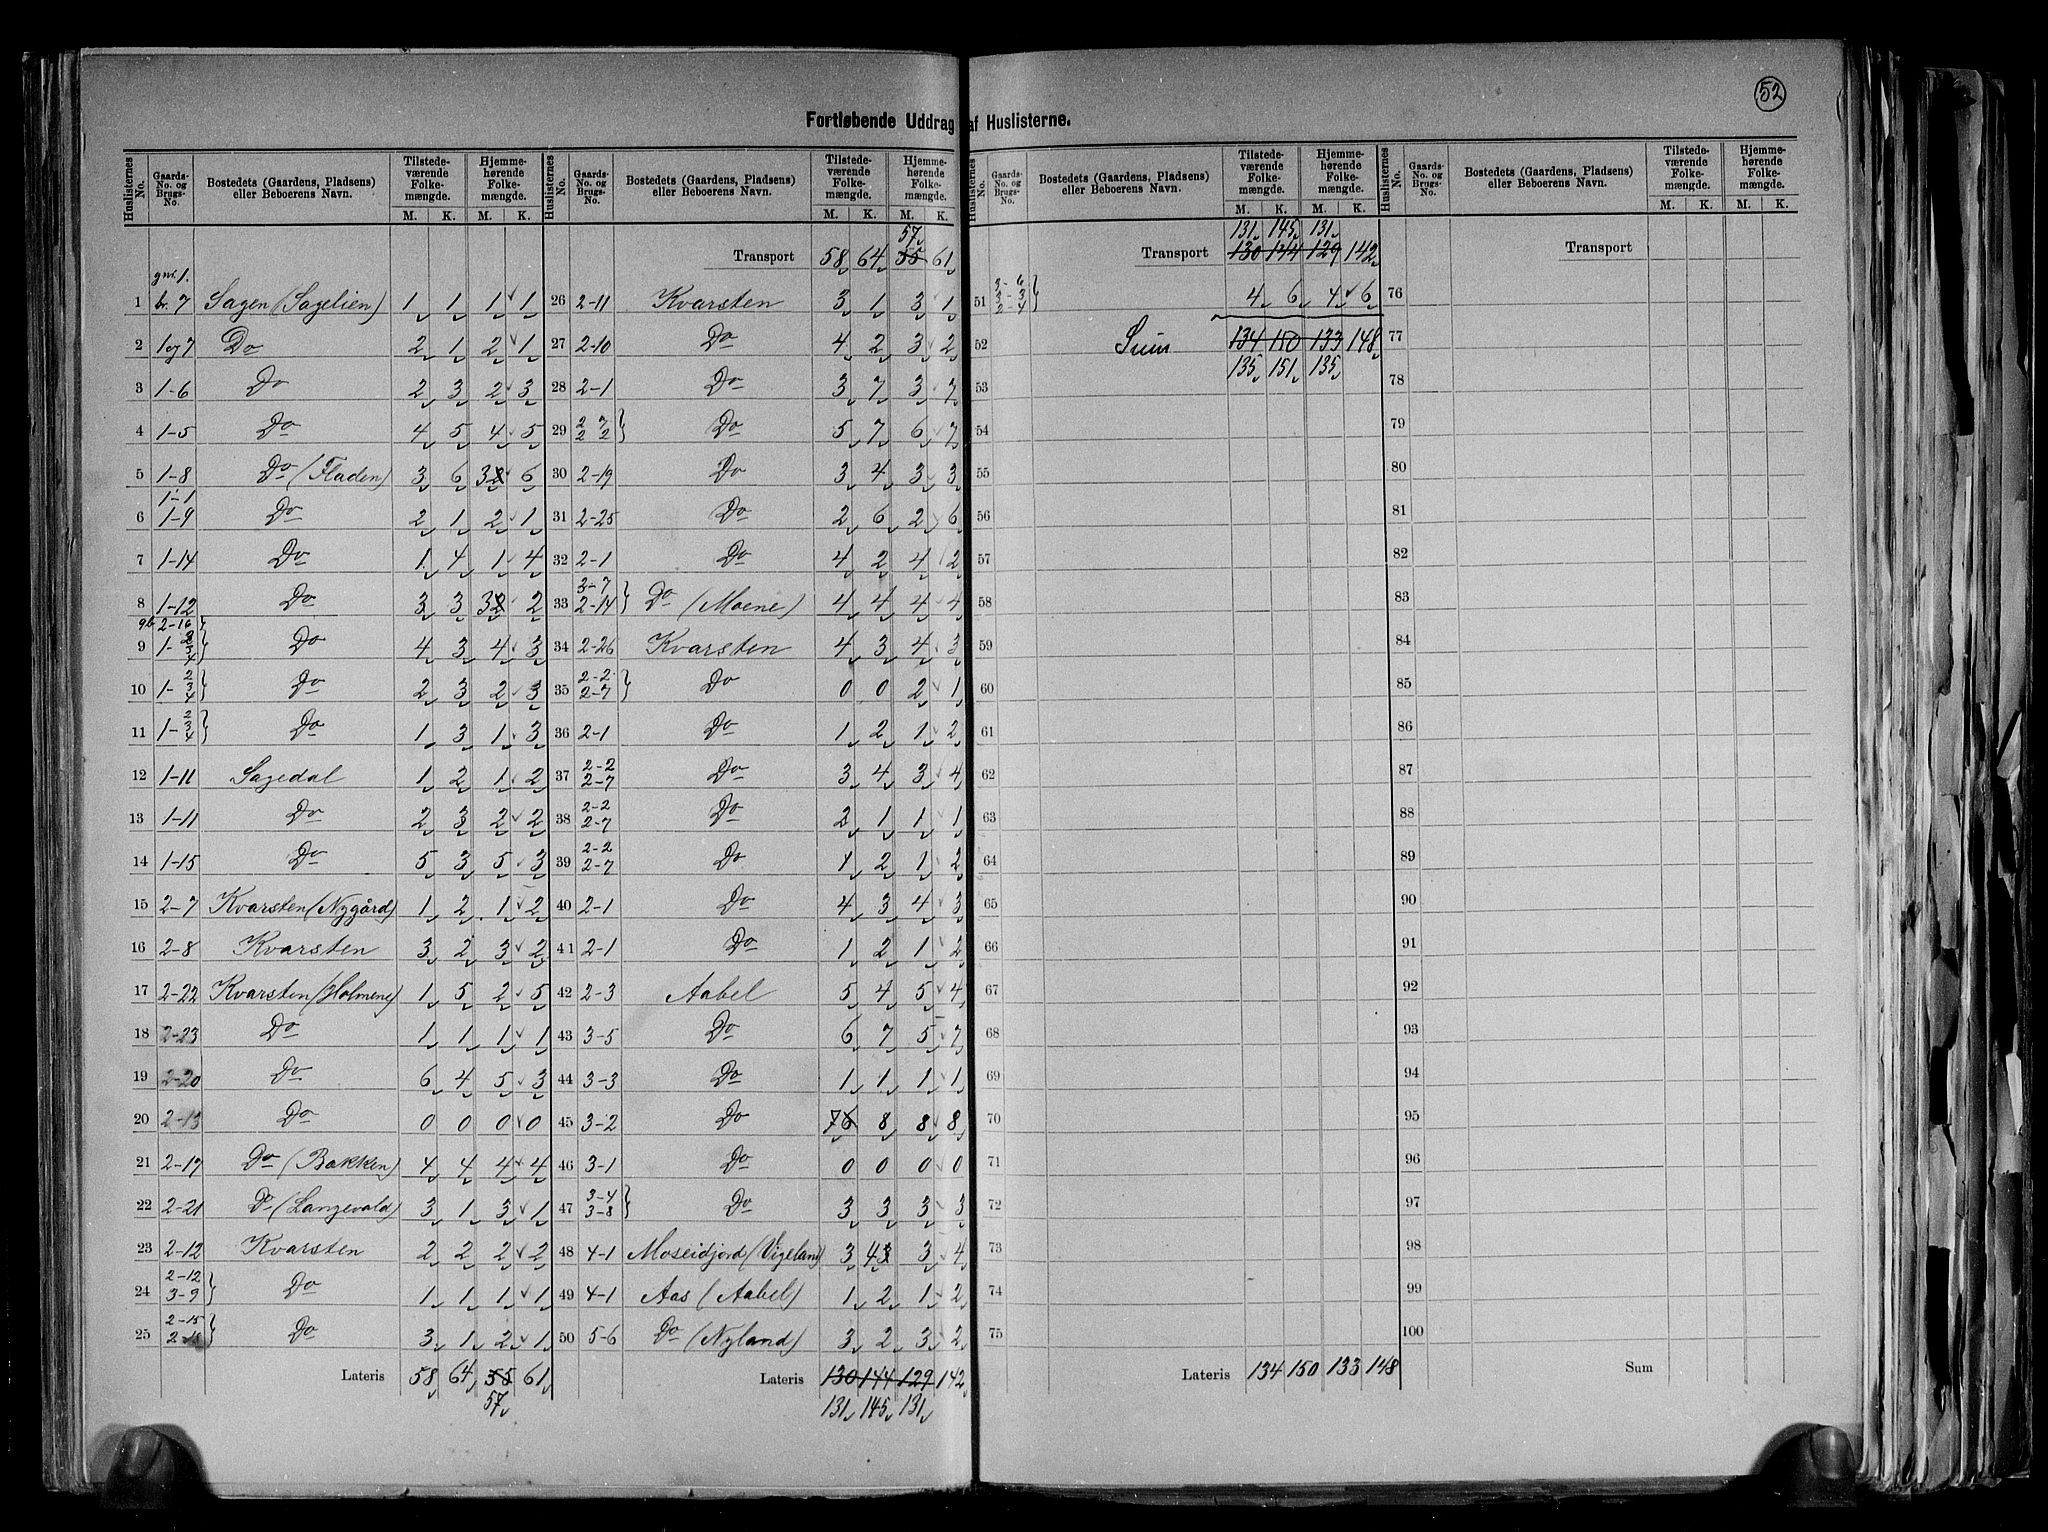 52
Fortløbende Uddrag af Huslisterne.
Huslisternes No. Gaards-No. og Brugs-No. Bostedets (Gaardens, Pladsens) eller Beboerens Navn. Tilstedeværende Folkemængde. M. K. Hjemmehørende Folkemængde. M. K.
gnr. 1.
1 br. 7 Sagen (Sagelien) 1 1 1 1
2 1 og 7 Do 2 1 2 1
3 1-6 Do 2 3 2 3
4 1-5 Do 4 5 4 5
5 1-8 Do (Fladen) 3 6 3 2 6
6 1-1 1-9 Do 2 1 2 1
7 1-14 Do 1 4 1 4
8 1-12 Do 3 3 3 2 2
9b 2-16
9 1- 2 3 4 } Do 4 3 4 3
10 1- 2 3 4 } Do 2 3 2 3
11 1- 2 3 4 } Do 1 3 1 3
12 1-11 Sagedal 1 2 1 2
13 1-11 Do 2 3 2 2
14 1-15 Do 5 3 5 3
15 2-7 Kvarsten (Nygård) 1 2 1 2
16 2-8 Kvarsten 3 2 3 2
17 2-22 Kvarsten (Holmene) 1 5 2 5
18 2-23 Do 1 1 1 1
19 2-20 Do 6 4 5 3
20 2-13 Do 0 0 0 0
21 2-17 Do (Bakken) 4 4 4 4
22 2-21 Do (Langevald) 3 1 3 1
23 2-12 Kvarsten 2 2 2 2
24 2-12 3-9 } Do 1 1 1 1
25 2-15 } Do 3 1 2 1
Lateris 58 64 55 61
57
Huslisternes No. Gaards-No. og Brugs-No. Bostedets (Gaardens, Pladsens) eller Beboerens Navn. Tilstedeværende Folkemængde. M. K. Hjemmehørende Folkemængde. M. K.
57
Transport 58 64 55 61
26 2-11 Kvarsten 3 1 3 1
27 2-10 Do 4 2 3 2
28 2-1 Do 3 7 3 7
29 2 7 2 2 } Do 5 7 6 7
30 2-19 Do 3 4 3 3
31 2-25 Do 2 6 2 6
32 2-1 Do 4 2 4 2
33 2-7 2-14 } Do (Moene) 4 4 4 4
34 2-26 Kvarsten 4 3 4 3
35 2-2 2-7 } Do 0 0 2 1
36 2-1 Do 1 2 1 2
37 2-2 2-7 Do 3 4 3 4
38 2-2 2-7 Do 2 1 1 1
39 2-2 2-7 Do 1 2 1 2
40 2-1 Do 4 3 4 3
41 2-1 Do 1 2 1 2
42 2-3 Aabel 5 4 5 4
43 3-5 Do 6 7 5 7
44 3-3 Do 1 1 1 1
45 3-2 Do 7 6 8 8 8
46 3-1 Do 0 0 0 0
47 3-4 3-8 } Do 3 3 3 3
48 4-1 Moseidjord (Vigeland) 3 4 3 3 4
49 4-1 Aas (Aabel) 1 2 1 2
50 5-6 Do (Nyland) 3 2 3 2
Lateris 130 144 129 142
131 145 131
Huslisternes No. Gaards-No. og Brugs-No. Bostedets (Gaardens, Pladsens) eller Beboerens Navn. Tilstedeværende Folkemængde. M. K. Hjemmehørende Folkemængde. M. K.
131 145 131
Transport 130 144 129 142
51 3-3 2-4 } 4 6 4 6
52 Sum 134 150 133 148
53 135 151 135
54
55
56
57
58
59
60
61
62
63
64
65
66
67
68
69
70
71
72
73
74
75
Lateris 134 150 133 148
Huslisternes No. Gaards-No. og Brugs-No. Bostedets (Gaardens, Pladsens) eller Beboerens Navn. Tilstedeværende Folkemængde. M. K. Hjemmehørende Folkemængde. M. K.
Transport
76
77
78
79
80
81
82
83
84
85
86
87
88
89
90
91
92
93
94
95
96
97
98
99
100
Sum